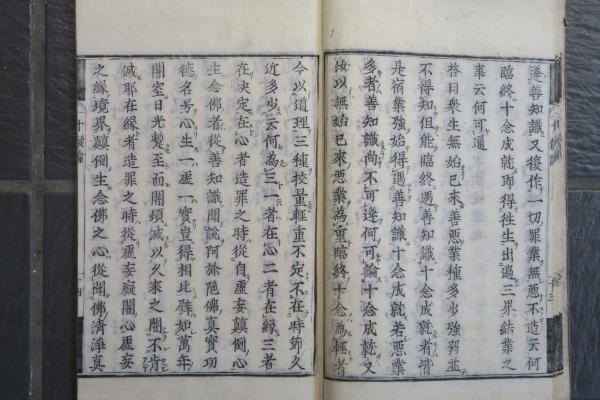 逢善知識又復作一切罪業無惡不造云何
臨終十念成就即得往生出過三界結業之
事云何可通
答曰衆生無始已來善惡業種多少強弱並
不得知但能臨終遇善知識十念成就者皆
是宿業強始得遇善知識十念成就若惡業
多者善知識尚不可逢何可論十念成就又
汝以無始已來惡業為重臨終十念為輕者
今以道理三種挍量輕重不定不在時節久
近多少云何為三一者在心二者在緣三者
在決定在心者造罪之時從自虛妄顛倒心
生念佛者從善知識聞說阿弥陁佛真實功
德名号心生一虛一實豈得相比譬如万年
闇室日光暫至而闇頓滅以久來之闇不肯
滅耶在緣者造罪之時從虛妄癡闇心虛妄
之緣境界顛倒生念佛之心從聞佛清淨真
十疑論